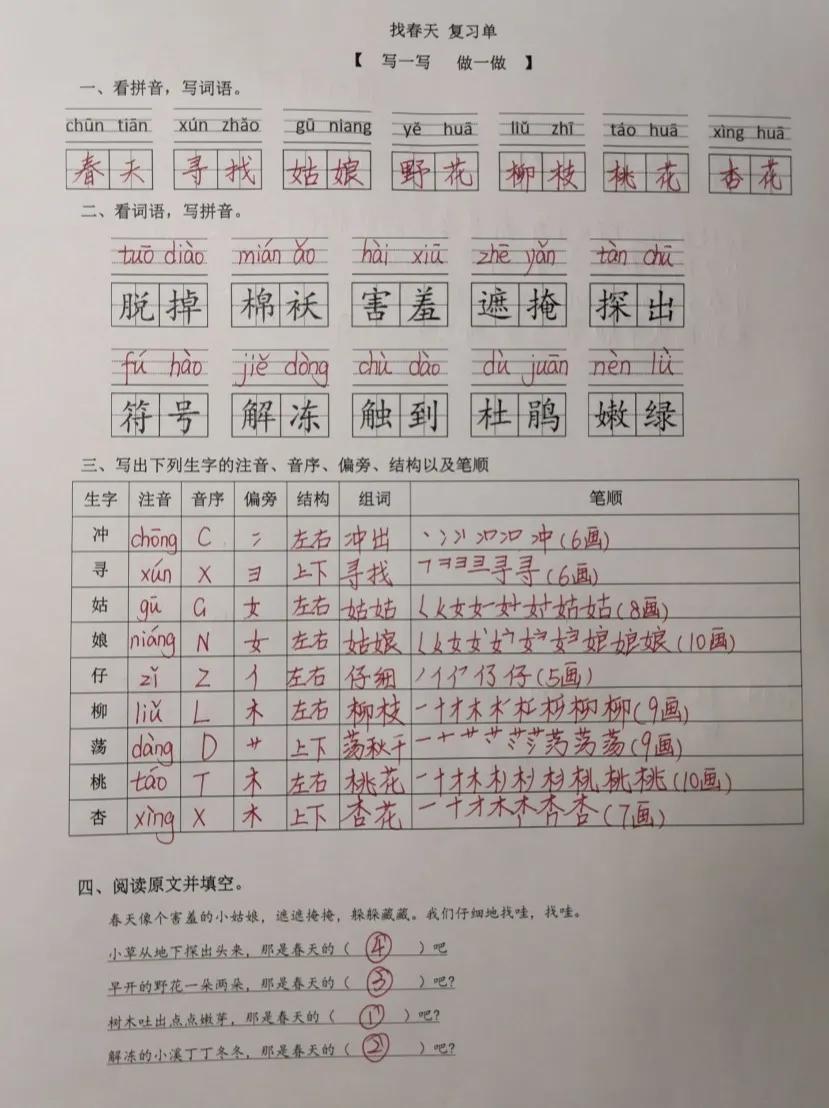 找春天 复习单
【 写一写 做一做 】
一、看拼音，写词语。
chūn tiān xún zhǎo gū niang yě huā liǔ zhī táo huā xìng huā
春天 寻找 姑娘 野花 柳枝 桃花 杏花
二、看词语，写拼音。
tuō diào mián ǎo hài xiū zhē yǎn tàn chū
脱掉 棉袄 害羞 遮掩 探出
fú hào jiě dòng chù dào dù juān nèn lǜ
符号 解冻 触到 杜鹃 嫩绿
三、写出下列生字的注音、音序、偏旁、结构以及笔顺
生字 注音 音序 偏旁 结构 组词 笔顺
冲 chōng C 冫 左右 冲出 冲(6画)
寻 xún X 彐 上下 寻找 寻寻(6画)
姑 gū G 女 左右 姑姑 姑姑(8画)
娘 niáng N 女 左右 姑娘 娘(10画)
仔 zǐ Z 亻 左右 仔细 仔(5画)
柳 liǔ L 木 左右 柳枝 一十才木 柳(9画)
荡 dàng D 艹 上下 荡秋千 一十艹 荡(9画)
桃 táo T 木 左右 桃花 一十才木 桃(10画)
杏 xìng X 木 上下 杏花 一十才木 杏(7画)
四、阅读原文并填空。
春天像个害羞的小姑娘，遮遮掩掩，躲躲藏藏。我们仔细地找哇，找哇。
小草从地下探出头来，那是春天的（ ④ ）吧
早开的野花一朵两朵，那是春天的（ ③ ）吧?
树木吐出点点嫩芽，那是春天的（ ① ）吧?
解冻的小溪丁丁冬冬，那是春天的（ ② ）吧?